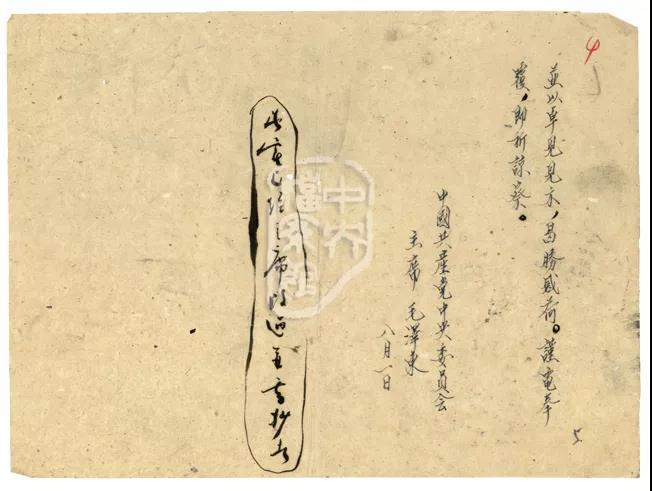 4
並以卓見見示,曷勝感荷。謹電奉
覆,即祈諒察。
中國共產党中央委員会
主席 毛澤東
八月一日
主席改过並
抄
5
中央
檔案館